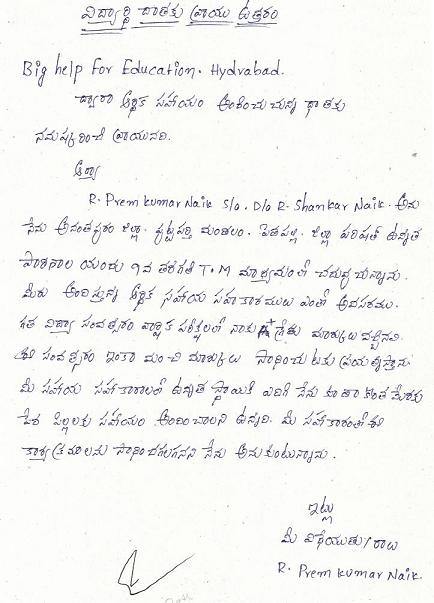 విద్యార్థి దాతకు వ్రాయు ఉత్తరం
Big help for Education. Hydrabad.
ద్వారా ఆర్థిక సహాయం అందించుచున్న దాతకు
నమష్కరించి వ్రాయునది.
ఆర్యా
R. Prem kumar Naik S/o. D/o R. Shankar Naik. అను
నేను అనంతపురం జిల్లా. పుట్టపర్తి మండలం. పెదపల్లి. జిల్లా పరిషత్ ఉన్నత
పాఠశాల యందు 9వ తరగతి T.M మాధ్యమంలో చదువు చున్నాను.
మీరు అందిస్తున్న ఆర్థిక సహాయ సహాకారములు ఎంతో అవసరము.
గత విద్యా సంవత్సరం వార్షిక పరీక్షలలో నాకు A+ గ్రేడు మార్కులు వచ్చినవి.
ఈ సంవత్సరం ఇంకా మంచి మార్కులు సాధించుటకు ప్రయత్నిస్తాను.
మీ సహాయ సహాకారాలతో ఉన్నత స్థాయికి ఎదిగి నేను కూడా కొంత మేరకు
పేద పిల్లలకు సహాయం అందించాలని ఉన్నది. మీ సహాకారంతో ఈ
కార్యక్రమాలను సాధించగలగనని నేను అనుకుంటున్నాను.
ఇట్లు
మీ విధేయుడు/రాలు
R. Prem kumar Naik.